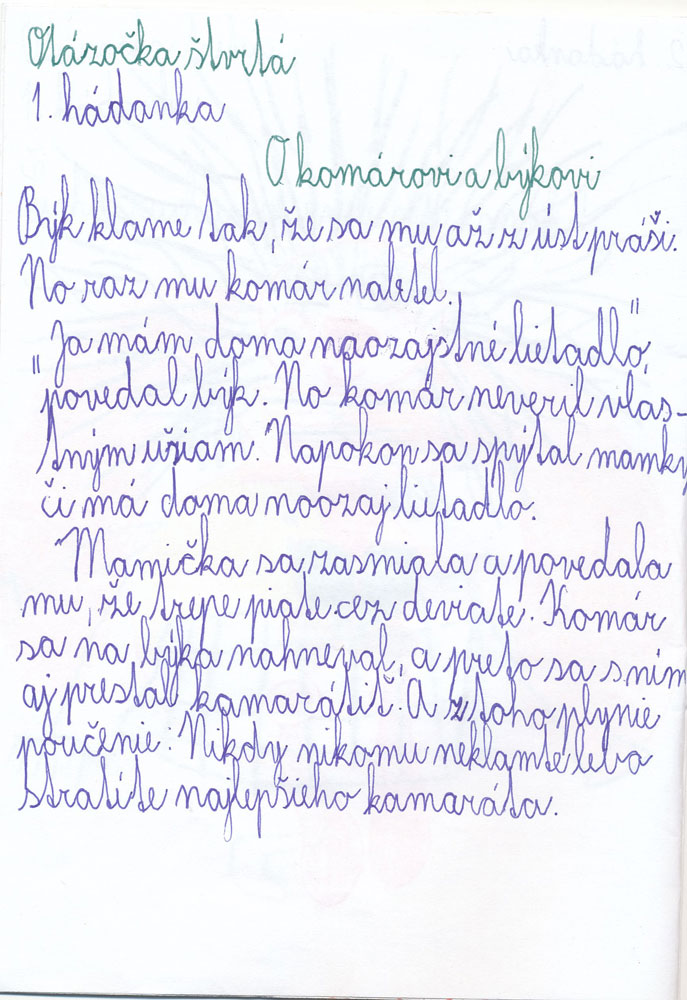 Otázočka štvrtá
1. hádanka
O komárovi a býkovi
Býk klame tak, že sa mu až z úst práši.
No raz mu komár naletel.
"Ja mám doma naozajstné lietadlo",
povedal býk. No komár neveril vlas-
tným ušiam. Napokon sa spýtal mamky
či má doma noozaj lietadlo.
Mamička sa zasmiala a povedala
mu, že trepe piate cez deviate. Komár
sa na býka nahneval, a preto sa s ním
aj prestal kamarátiť. A z toho plynie
poučenie: Nikdy nikomu neklamte lebo
stratíte najlepšieho kamaráta.